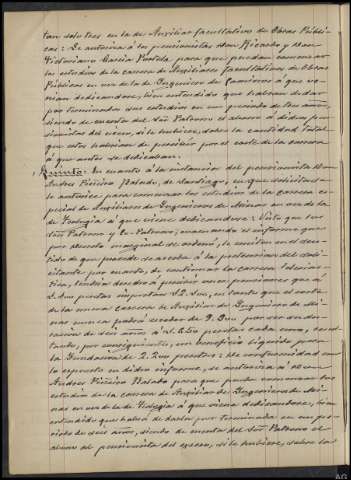 tan solo tres en la de Auxiliar facultativo de Obras Públi-
cas: Se autoriza á los pensionistas Don Ricardo y Don
Victoriano García Partida para que puedan comenzar
los estudios de la carrera de Auxiliares facultativos de Obras
Públicas en vez de la de Ingenieros de Caminos á que ve-
nian dedicandose, bien entendido que habran de dar
por terminados sus estudios en un periodo de tres años,
siendo de cuenta del Sor Patrono el abono á dichos pen-
sionistas del exceso, si le hubiere, sobre la cantidad total
que estos habrian de percibir por el coste de la carrera
á que antes se dedicaban.
Quinto: En cuanto á la instancia del pensionista Don
Andres Piñeiro Batado, de Santiago, en que solicita se
le autorice para comenzar los estudios de la carrera es-
pecial de Auxiliares de Ingenieros de Minas en vez de la
de Teología á que viene dedicandose: Visto que los
Sres Patrono y Co-Patrono, evacuando el informe que
por decreto marginal se ordenó, le emiten en el sen-
tido de que procede se acceda á la pretension del soli-
citante por cuanto, de continuar la carrera Eclesiás-
tica, tendria derecho á percibir pensiones que á
pesetas importan 12. en tanto que el coste
de la nueva carrera de Auxiliar de Ingenieros de Mi-
nas nunca podrá exceder de 9. por ser su du-
racion de seis años á pesetas cada uno, resul-
tando, por consiguiente, un beneficio líquido para
la Fundacion de pesetas: De conformidad con
lo expuesto en dicho informe, se autoriza á Don
Andres Piñeiro Batado para que pueda comenzar los
estudios de la carrera de Auxiliar de Ingenieros de Mi-
nas en vez de la de Teología á que venia dedicandose, bien
entendido que habrá de darlos por terminados en un pe-
riodo de seis años, siendo de cuenta del Sor Patrono el
abono al pensionista del exceso, si le hubiere, sobre la